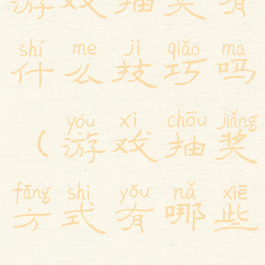 游戏抽奖有
shí me jì qiǎo ma
什么技巧吗
yóu xì chōu jiǎng
（游戏抽奖
fāng shì yǒu nǎ xiē
方式有哪些